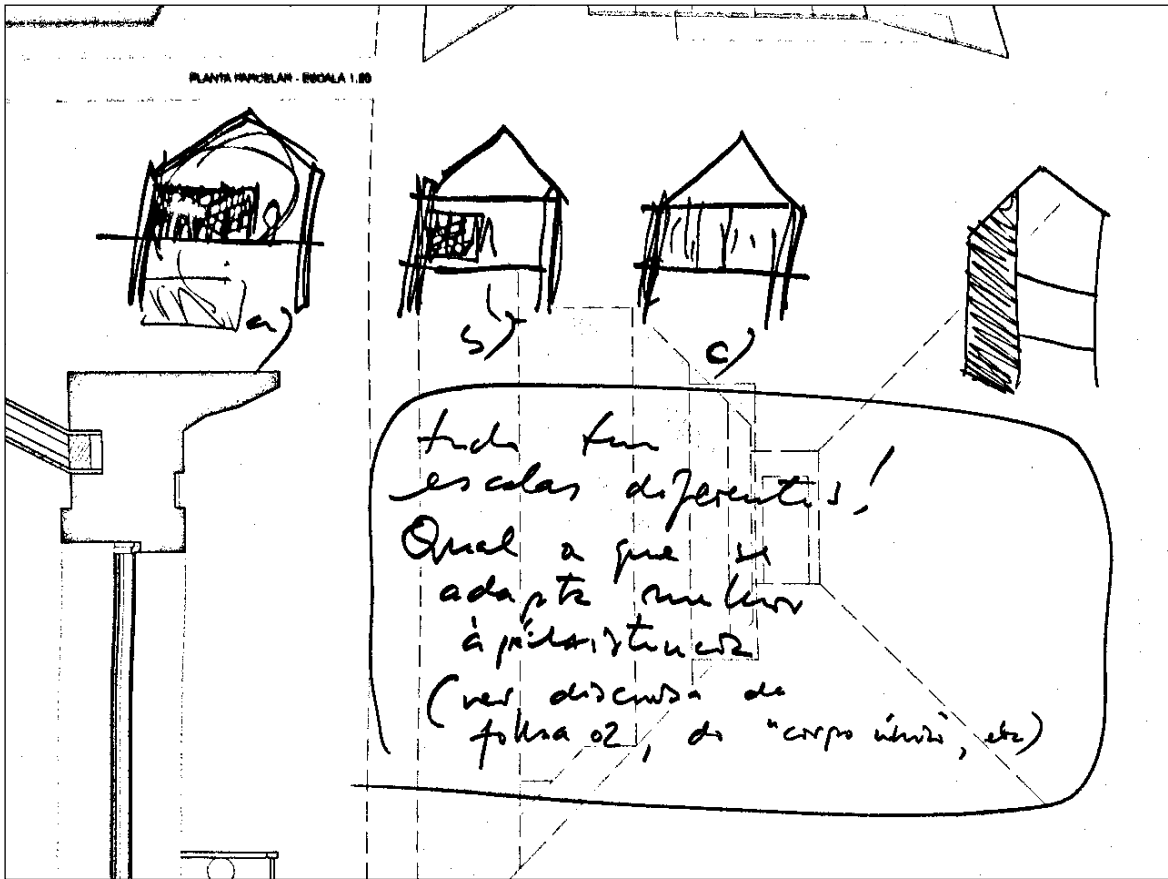 PLANTA PARCELAR - ESCALA 1.20
a)
b)
c)
tudo tem
escalas diferentes!
Qual a que se
adapta melhor
à préexistencia
(ver discussão da
folha 02, do "corpo único", etc)